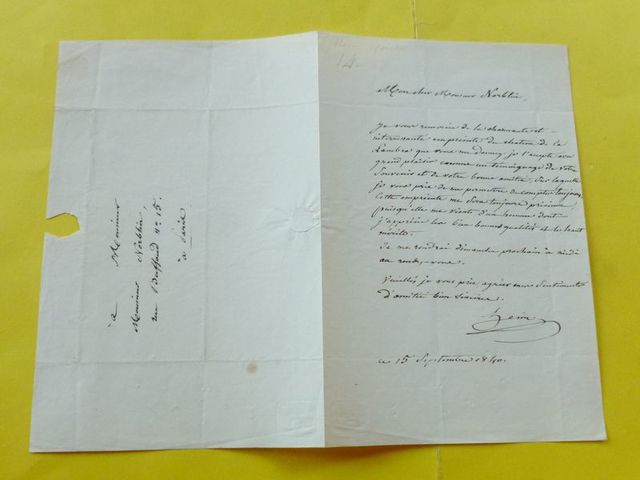 Mon cher Monsieur Norblin,
Je vous remercie de la charmante et
intéressante empreinte du
que vous me donnez, je l'accepte avec
grand plaisir comme un témoignage de votre
Souvenir et de votre bonne amitié, sur laquelle
je vous prie de me permettre de compter toujours,
Cette empreinte me sera toujours précieuse,
puisqu'elle me vient d'un homme dont
j'apprécie les bonnes qualités et le haut
mérite.
Je me rendrai dimanche prochain à midi
au rendez-vous.
Veuillez je vous prie, agréer mes Sentiments
d'amitié bien Sincères.
ce 15 Septembre 1840.
à
Monsieur
Monsieur Norblin
rue Buffaud n° 15.
à Paris